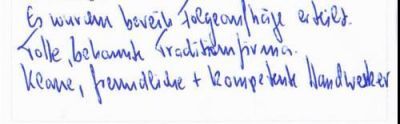 Es wurden bereits Folgeaufträge erteilt.
Tolle, bekannte Traditionsfirma.
Klasse, freundliche + kompetente Handwerker